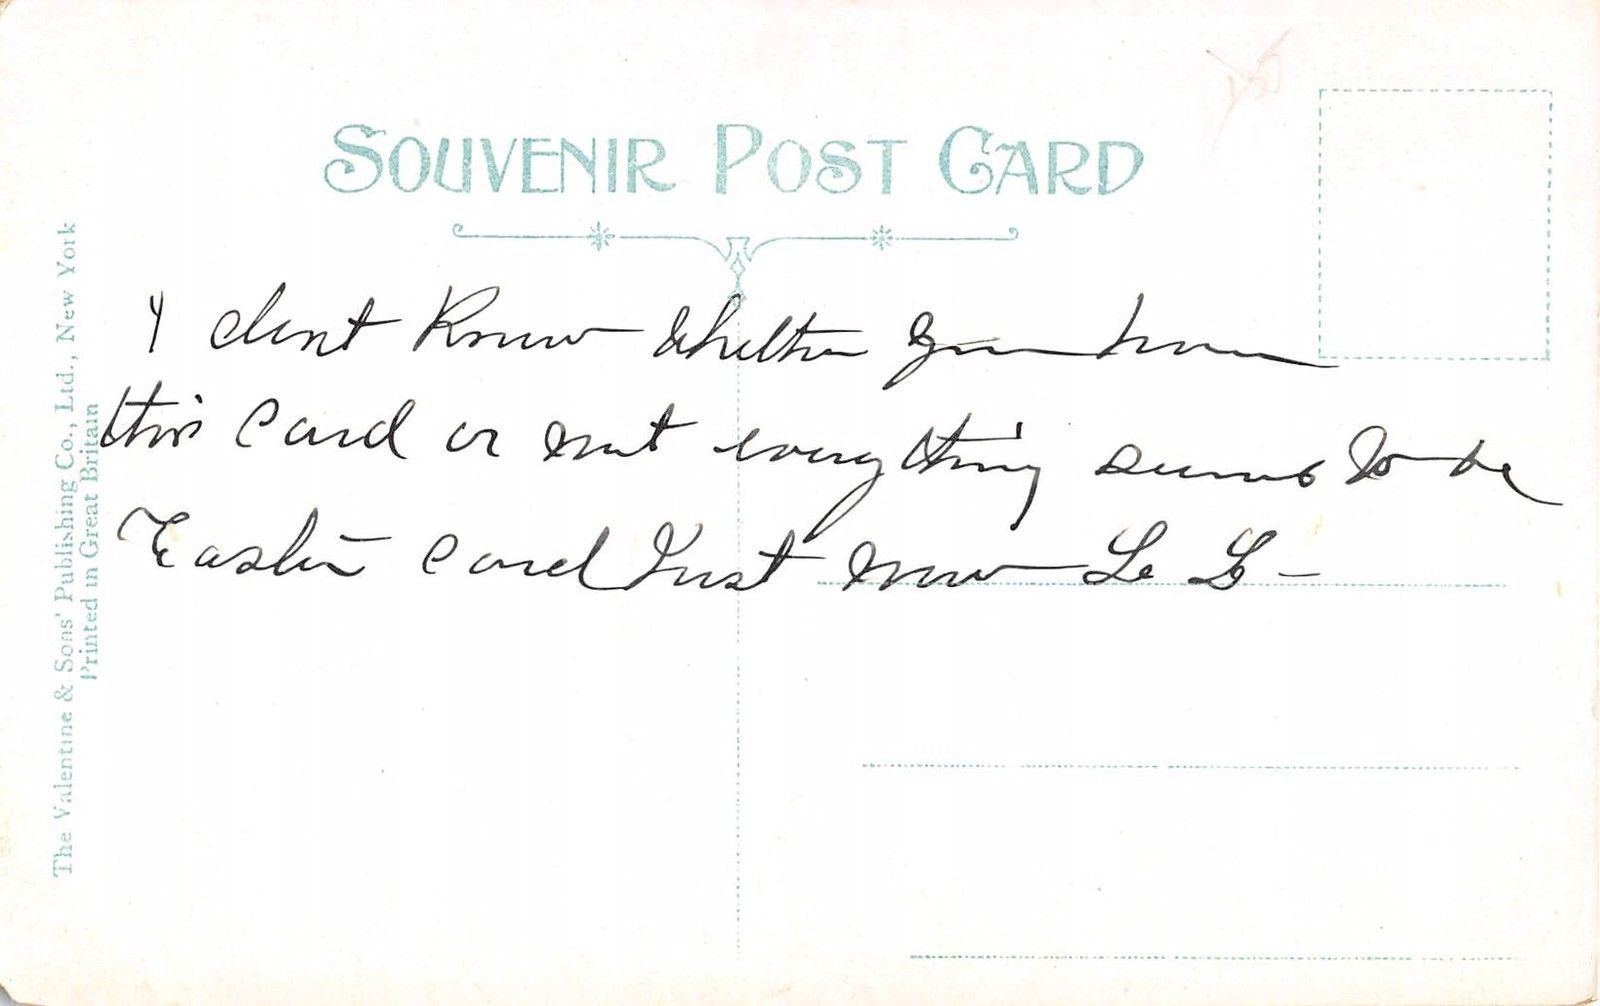 SOUVENIR POST CARD
I dont Know Whether you have
this Card or not everything seems to be
Easter Card Just now
The Valentine & Sons' Publishing Co., Ltd., New York
Printed in Great Britain